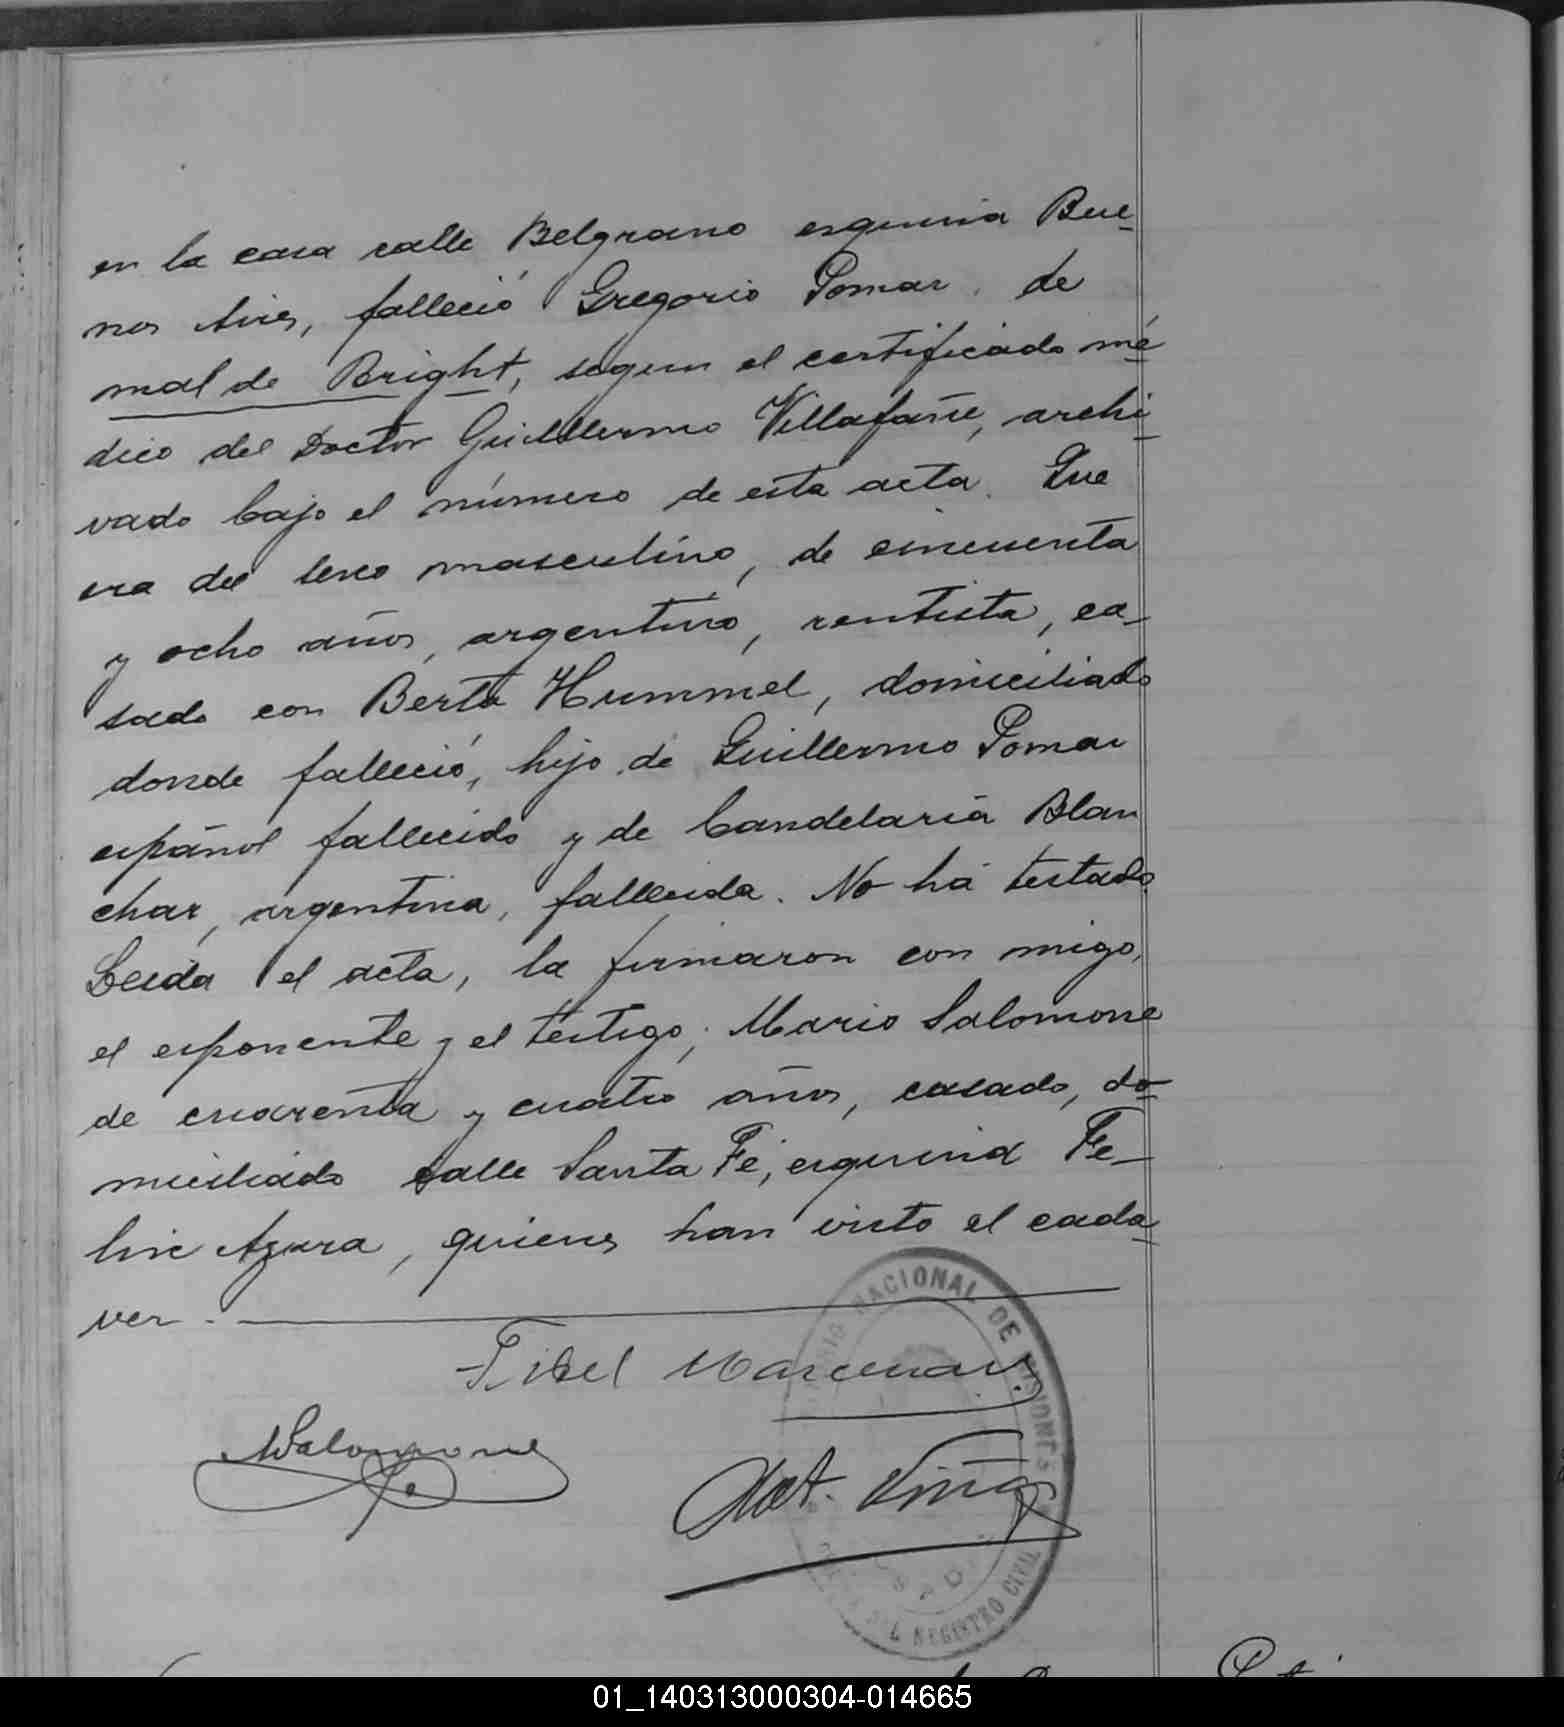 en la casa calle Belgrano esquina Bue-
nos Aires, falleció Gregorio Pomar, de
mal de Bright, segun el certificado mé-
dico del Doctor Guillermo Villafañe, archi-
vado bajo el número de esta acta. Que
era del sexo masculino, de cincuenta
y ocho años, argentino, rentista, ca-
sado con Berta Hummel, domiciliado
donde falleció, hijo de Guillermo Pomar
español fallecido y de Candelaria Blan
char, argentina, fallecida. No há testado.
Leida el acta, la firmaron con migo,
el exponente y el testigo; Mario Salomone
de cuarenta y cuatro años, casado, do-
miciliado calle Santa Fé, esquina Fe-
lix Azara, quienes han visto el cada-
ver.
Fidel
MSalomone
NACIONAL DE MISIONES
DEL REGISTRO CIVIL
01_140313000304-014665